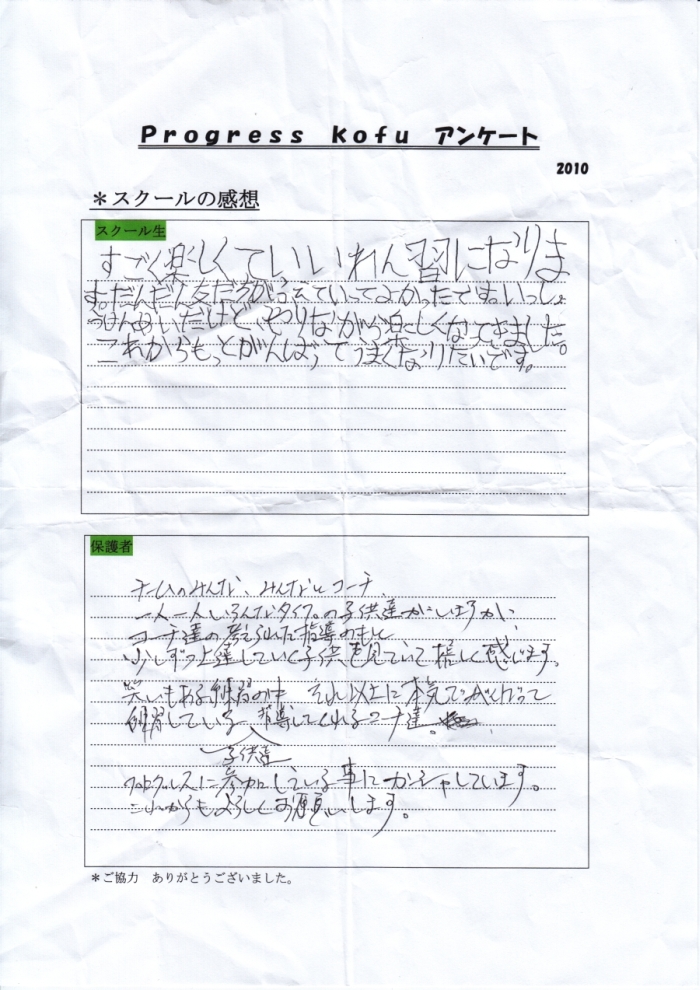 Progress kofu アンケート
2010
＊スクールの感想
スクール生
すごく楽しくていいれん習になりま
す。だんだん友だちがふえていってよかったです。いっしょ
うけんめいだけど、やりながら楽しくなってきました。
これからもっとがんばってうまくなりたいです。
保護者
チームのみんな、みんなとコーチ、
一人一人いろんなタイプの子供達がいるが
コーチ達の考えられた指導のもと
少しずつ上達していく子供を見ていて嬉しく感じます。
笑いもある練習の中 それ以上に本気で
練習している 指導してくれるコーチ達。
子供達
プログレスに参加している事にカンシャしています。
これからもよろしくお願いします。
＊ご協力 ありがとうございました。